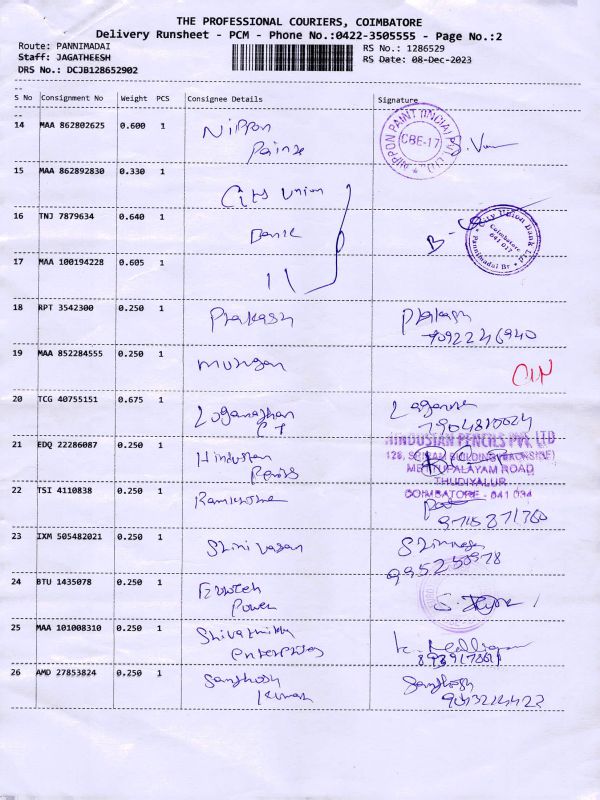 THE PROFESSIONAL COURIERS, COIMBATORE
Delivery Runsheet - PCM - Phone No.:0422-3505555 - Page No.:2
Route: PANNIMADAI RS No.: 1286529
Staff: JAGATHEESH RS Date: 08-Dec-2023
DRS No.: DCJB128652902
S No Consignment No Weight PCS Consignee Details Signature
14 MAA 862802625 0.600 1 Nippon
NIPPON PAINT (INDIA) PVT. LTD.
CBE-17
15 MAA 862892830 0.330 1 City Union
16 TNJ 7879634 0.640 1 Bank
City Union Bank Ltd
Coimbatore
641 017
Pannimadai Br
17 MAA 100194228 0.605 1 11
18 RPT 3542300 0.250 1 Prakash Prakash
7092246940
19 MAA 852284555 0.250 1 Murugan
20 TCG 40755151 0.675 1 Loganathan
7904810024
21 EDQ 22286087 0.250 1 Hindustan
HINDUSTAN PENCILS PVT. LTD
128, BUILDING (BACKSIDE)
METTUPALAYAM ROAD
THUDIYALUR
COIMBATORE - 641 034
22 TSI 4110838 0.250 1
23 IXM 505482021 0.250 1 Srinivasan
24 BTU 1435078 0.250 1
Power
25 MAA 101008310 0.250 1
enterprises
26 AMD 27853824 0.250 1 Santhosh Santhosh
Kumar